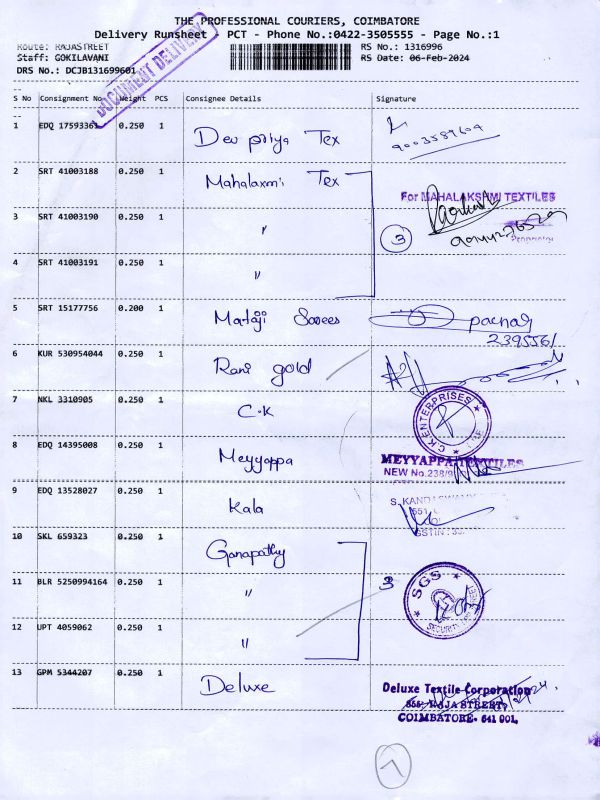 THE PROFESSIONAL COURIERS, COIMBATORE
Delivery Runsheet PCT - Phone No.:0422-3505555 - Page No.:1
Route: RAJASTREET
RS No.: 1316996
Staff: GOKILAVANI
RS Date: 06-Feb-2024
DRS No.: DCJB131699601
DOCUMENT DELIVERY
S No Consignment No Weight PCS Consignee Details Signature
1 EDQ 0.250 1 Dev priya Tex
9003589604
2 SRT 41003188 0.250 1 Mahalaxmi Tex
For MAHALAKSHMI TEXTILES
3 SRT 41003190 0.250 1 〃 3
Proprietor
4 SRT 41003191 0.250 1 〃
5 SRT 15177756 0.200 1 Mataji Sarees
2395561
6 KUR 530954044 0.250 1 Rani gold
7 NKL 3310905 0.250 1 C.K
C.K ENTERPRISES
8 EDQ 14395008 0.250 1 Meyyappa
MEYYAPPA TEXTILES
NEW No.238/
9 EDQ 13528027 0.250 1 Kala
S. KANDASWAMY
GSTIN : 33
10 SKL 659323 0.250 1 Ganapathy
11 BLR 5250994164 0.250 1 〃 3
SGS
SECURITY
12 UPT 4059062 0.250 1 〃
13 GPM 5344207 0.250 1 Deluxe
Deluxe Textile Corporation
RAJA STREET
COIMBATORE- 641 001.
7